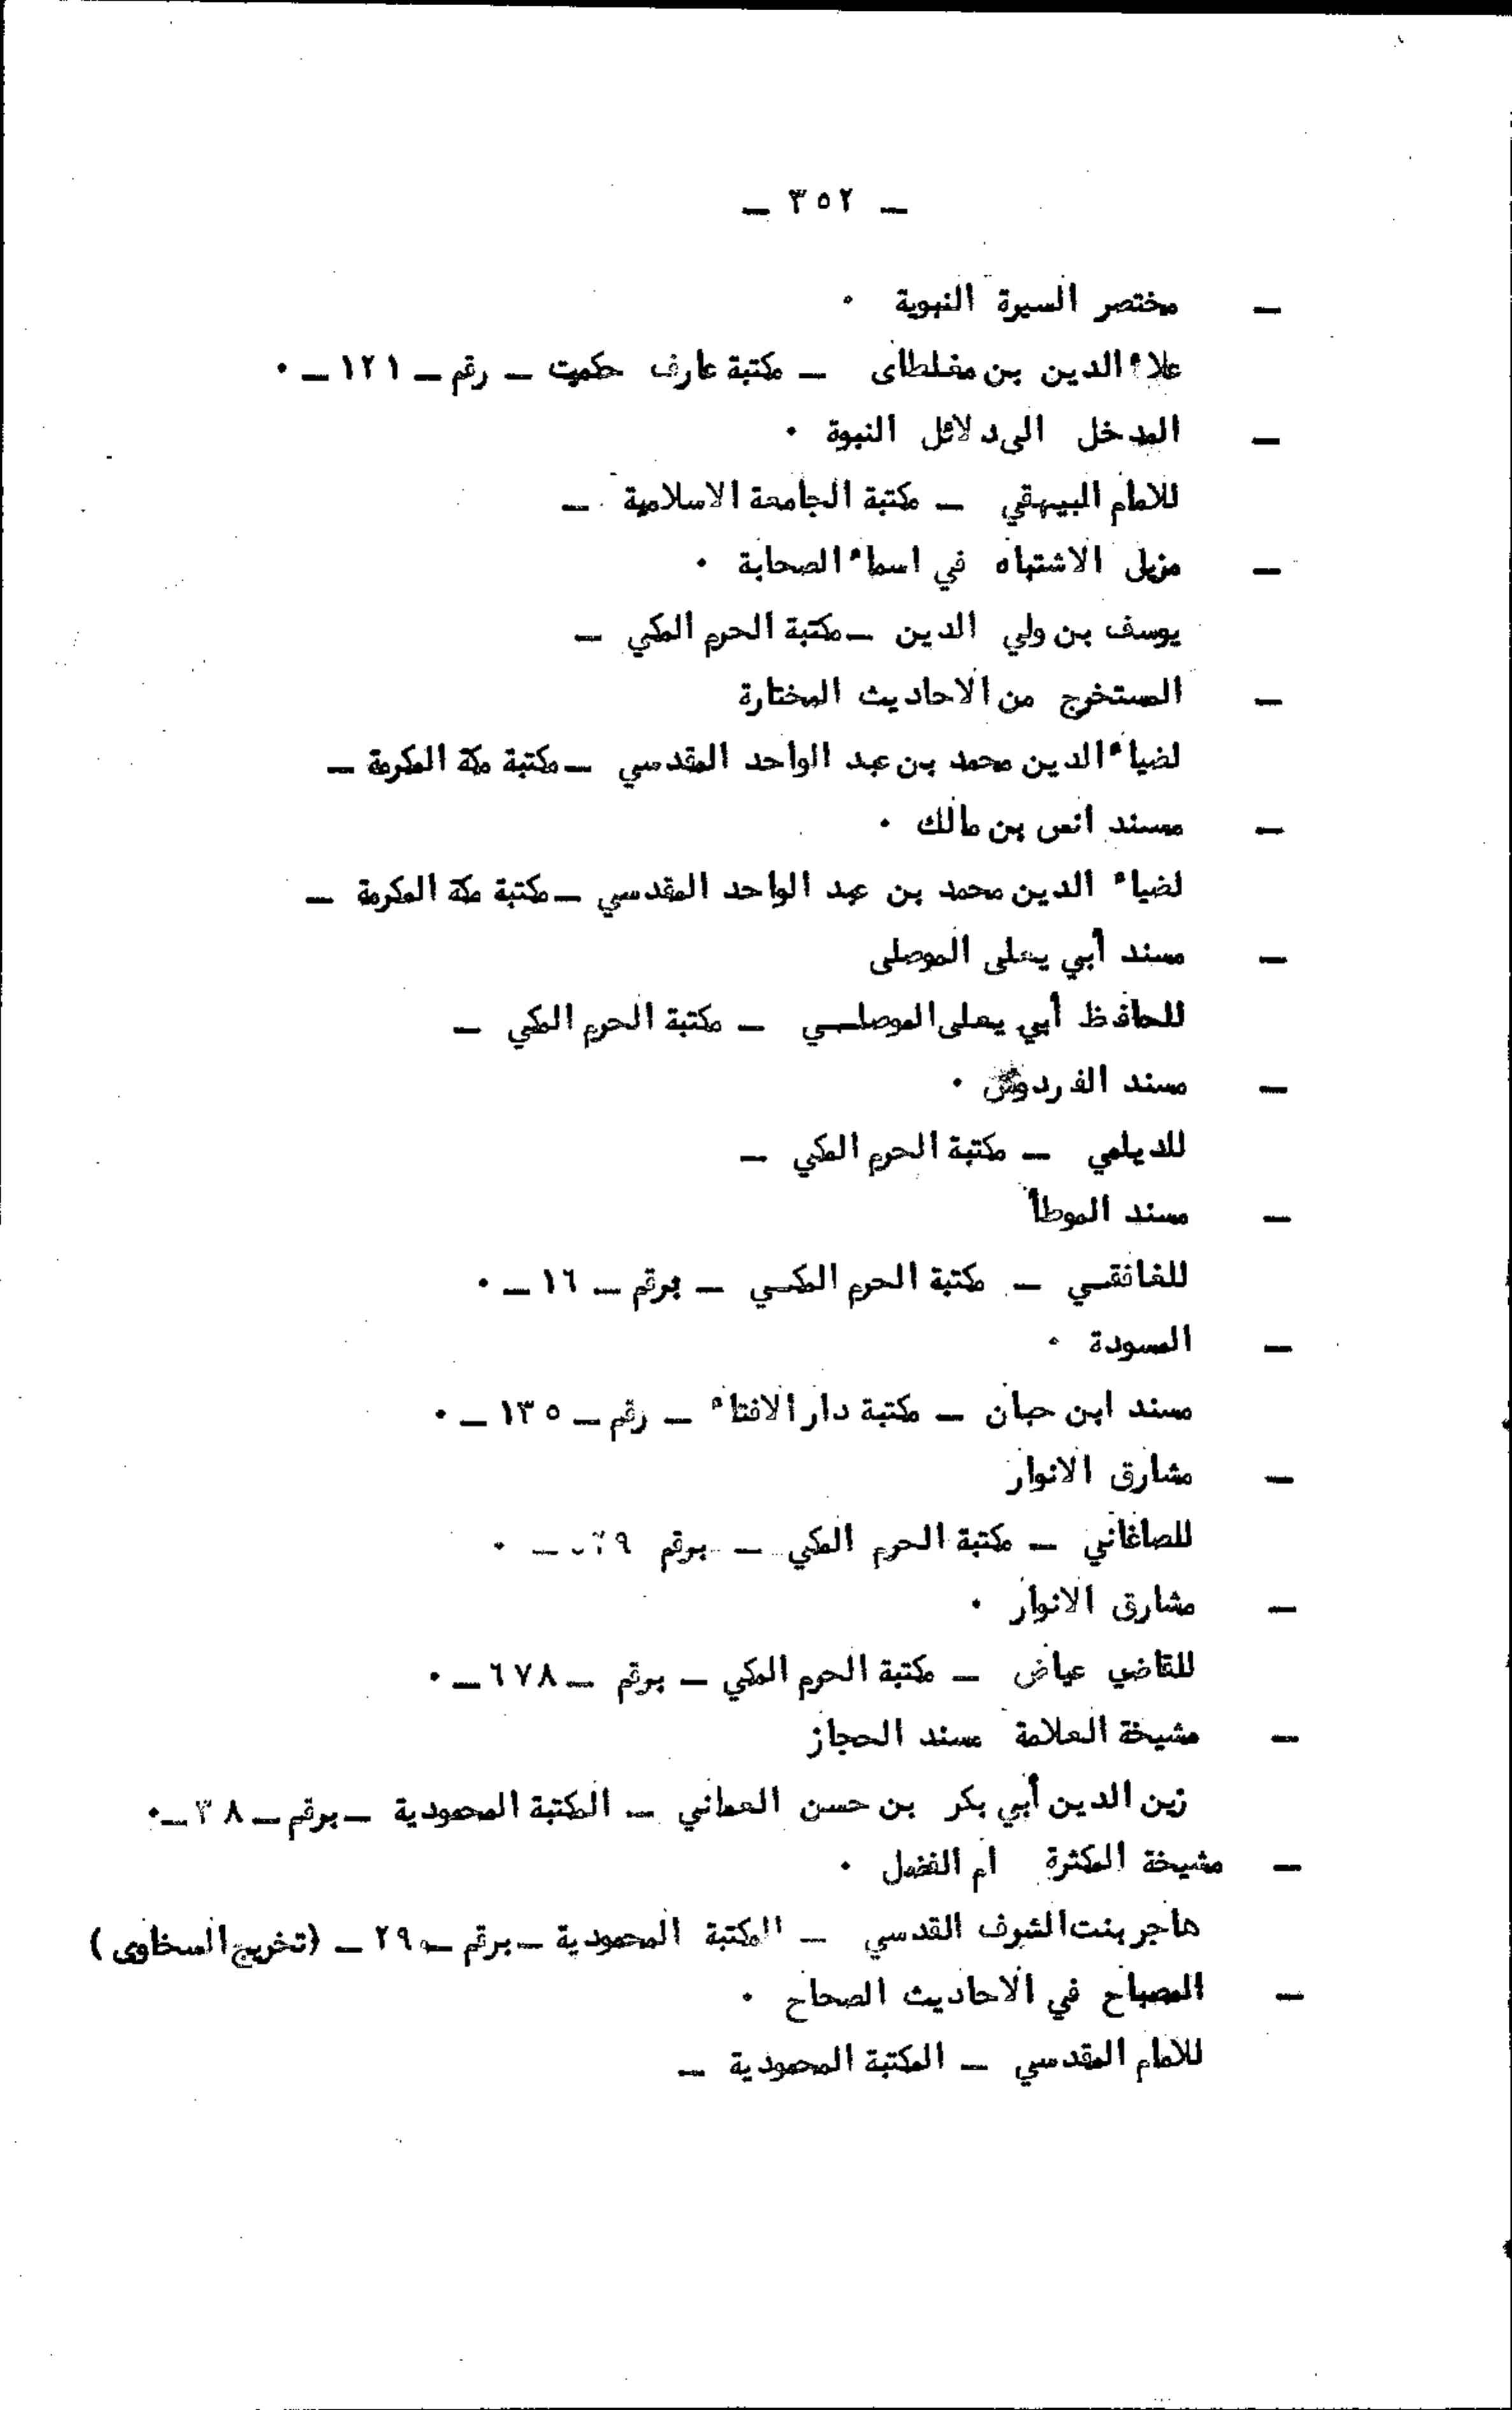 — ٣٥٢ —
— مختصر السيرة النبوية ٠
علاء الدين بن مغلطاى — مكتبة عارف حكمت — رقم — ١٢١ — ٠
— المدخل الى دلائل النبوة ٠
للامام البيهقي — مكتبة الجامعة الاسلامية —
— مزيل الاشتباه في اسماء الصحابة ٠
يوسف بن ولي الدين — مكتبة الحرم المكي —
— المستخرج من الاحاديث المختارة
لضياء الدين محمد بن عبد الواحد المقدسي — مكتبة مكة المكرمة —
— مسند انس بن مالك ٠
لضياء الدين محمد بن عبد الواحد المقدسي — مكتبة مكة المكرمة —
— مسند أبي يعلى الموصلى
للحافظ أبي يعلى الموصلي — مكتبة الحرم المكي —
— مسند الفردوس ٠
للديلمي — مكتبة الحرم المكي —
— مسند الموطأ
للغافقي — مكتبة الحرم المكي — برقم — ١٦ — ٠
— المسودة ٠
مسند ابن حبان — مكتبة دار الافتاء — رقم — ١٣٥ — ٠
— مشارق الانوار
للصاغاني — مكتبة الحرم المكي — برقم — ٠
— مشارق الانوار ٠
للقاضي عياض — مكتبة الحرم المكي — برقم — ٦٧٨ — ٠
— مشيخة العلامة مسند الحجاز
زين الدين أبي بكر بن حسن العماني — المكتبة المحمودية — برقم — ٣٨ — ٠
— مشيخة المكثرة ام الفضل ٠
هاجر بنت الشرف القدسي — المكتبة المحمودية — برقم — ٢٩٠ — (تخريج السخاوى)
— المصباح في الاحاديث الصحاح ٠
للامام المقدسي — المكتبة المحمودية —